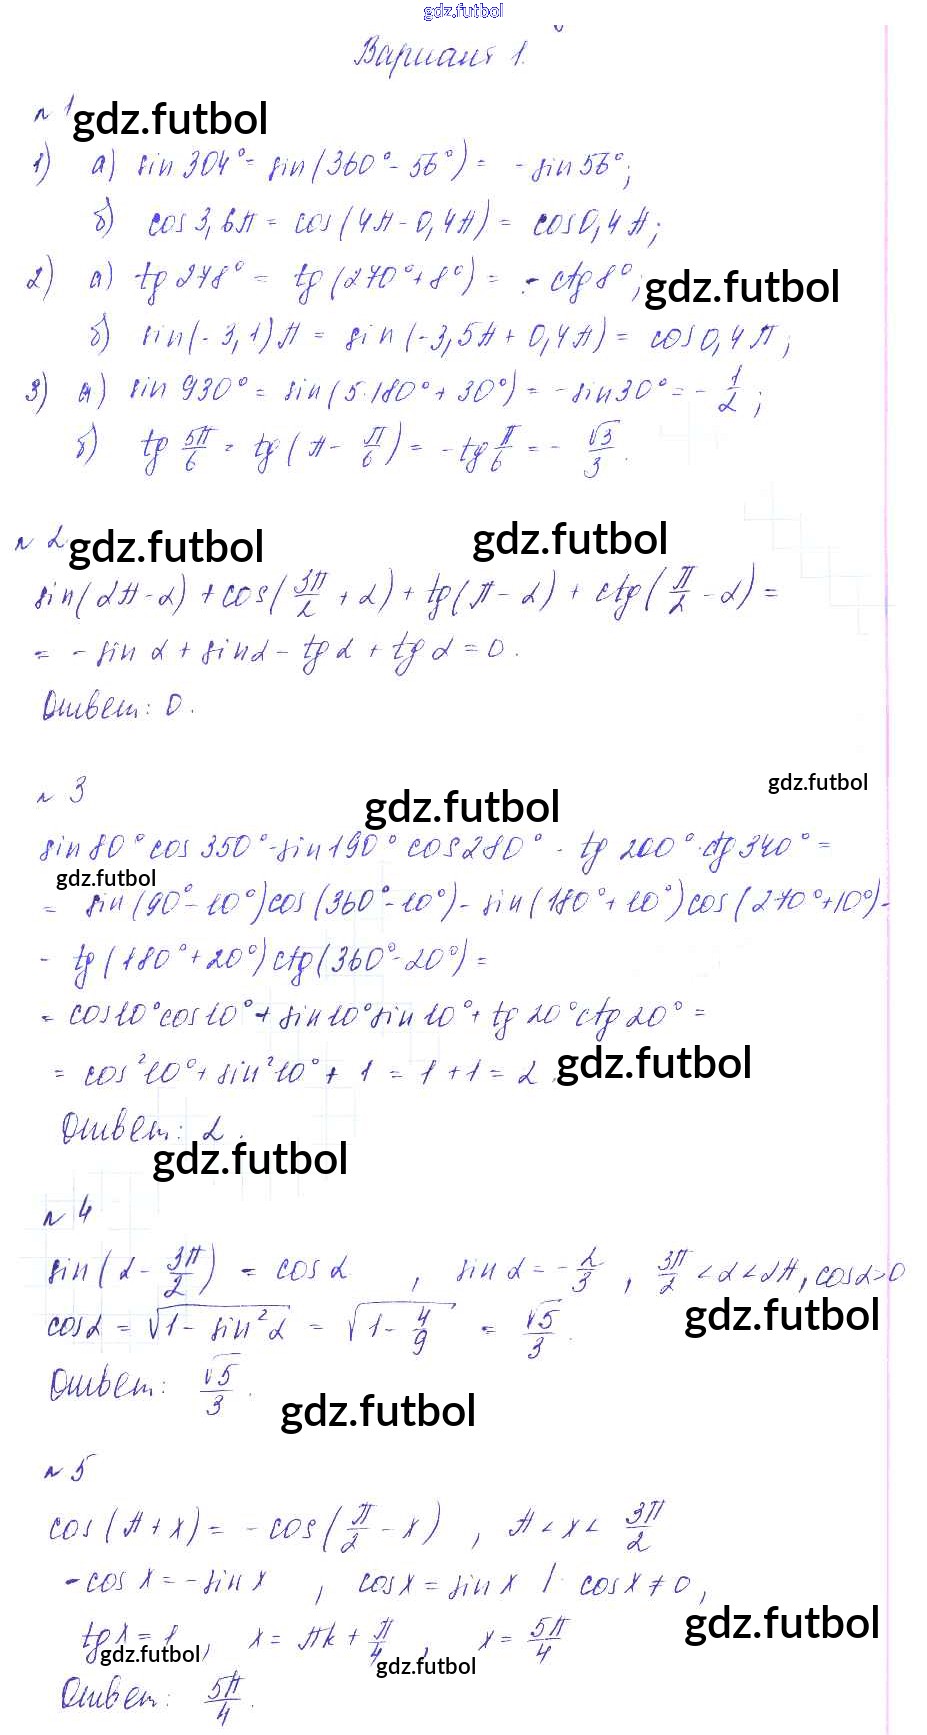 gdz.futbol
Вариант 1.
№ 1 gdz.futbol
1) а) sin 304° = sin(360° - 56°) = - sin 56°;
б) cos 3,6π = cos(4π - 0,4π) = cos 0,4π;
2) а) tg 278° = tg(270° + 8°) = - ctg 8°; gdz.futbol
б) sin(-3,1)π = sin(-3,5π + 0,4π) = cos 0,4π;
3) а) sin 930° = sin(5·180° + 30°) = - sin 30° = - 1/2;
б) tg 5π/6 = tg(π - π/6) = - tg π/6 = - √3/3.
№ 2 gdz.futbol gdz.futbol
sin(2π - α) + cos(3π/2 + α) + tg(π - α) + ctg(π/2 - α) =
= - sin α + sin α - tg α + tg α = 0.
Ответ: 0.
№ 3 gdz.futbol gdz.futbol
sin 80° cos 350° - sin 190° cos 280° - tg 200° · ctg 340° =
gdz.futbol
= sin(90° - 10°) cos(360° - 10°) - sin(180° + 10°) cos(270° + 10°) -
- tg(180° + 20°) ctg(360° - 20°) =
= cos 10° cos 10° + sin 10° sin 10° + tg 20° ctg 20° =
= cos²10° + sin²10° + 1 = 1 + 1 = 2. gdz.futbol
Ответ: 2.
gdz.futbol
№ 4
sin(α - 3π/2) = cos α, sin α = - 2/3, 3π/2 < α < 2π, cos α > 0
cos α = √(1 - sin²α) = √(1 - 4/9) = √5/3. gdz.futbol
Ответ: √5/3. gdz.futbol
№ 5
cos(π + x) = - cos(π/2 - x), π < x < 3π/2
- cos x = - sin x, cos x = sin x | : cos x ≠ 0,
tg x = 1, x = πk + π/4, x = 5π/4 gdz.futbol
gdz.futbol gdz.futbol
Ответ: 5π/4.